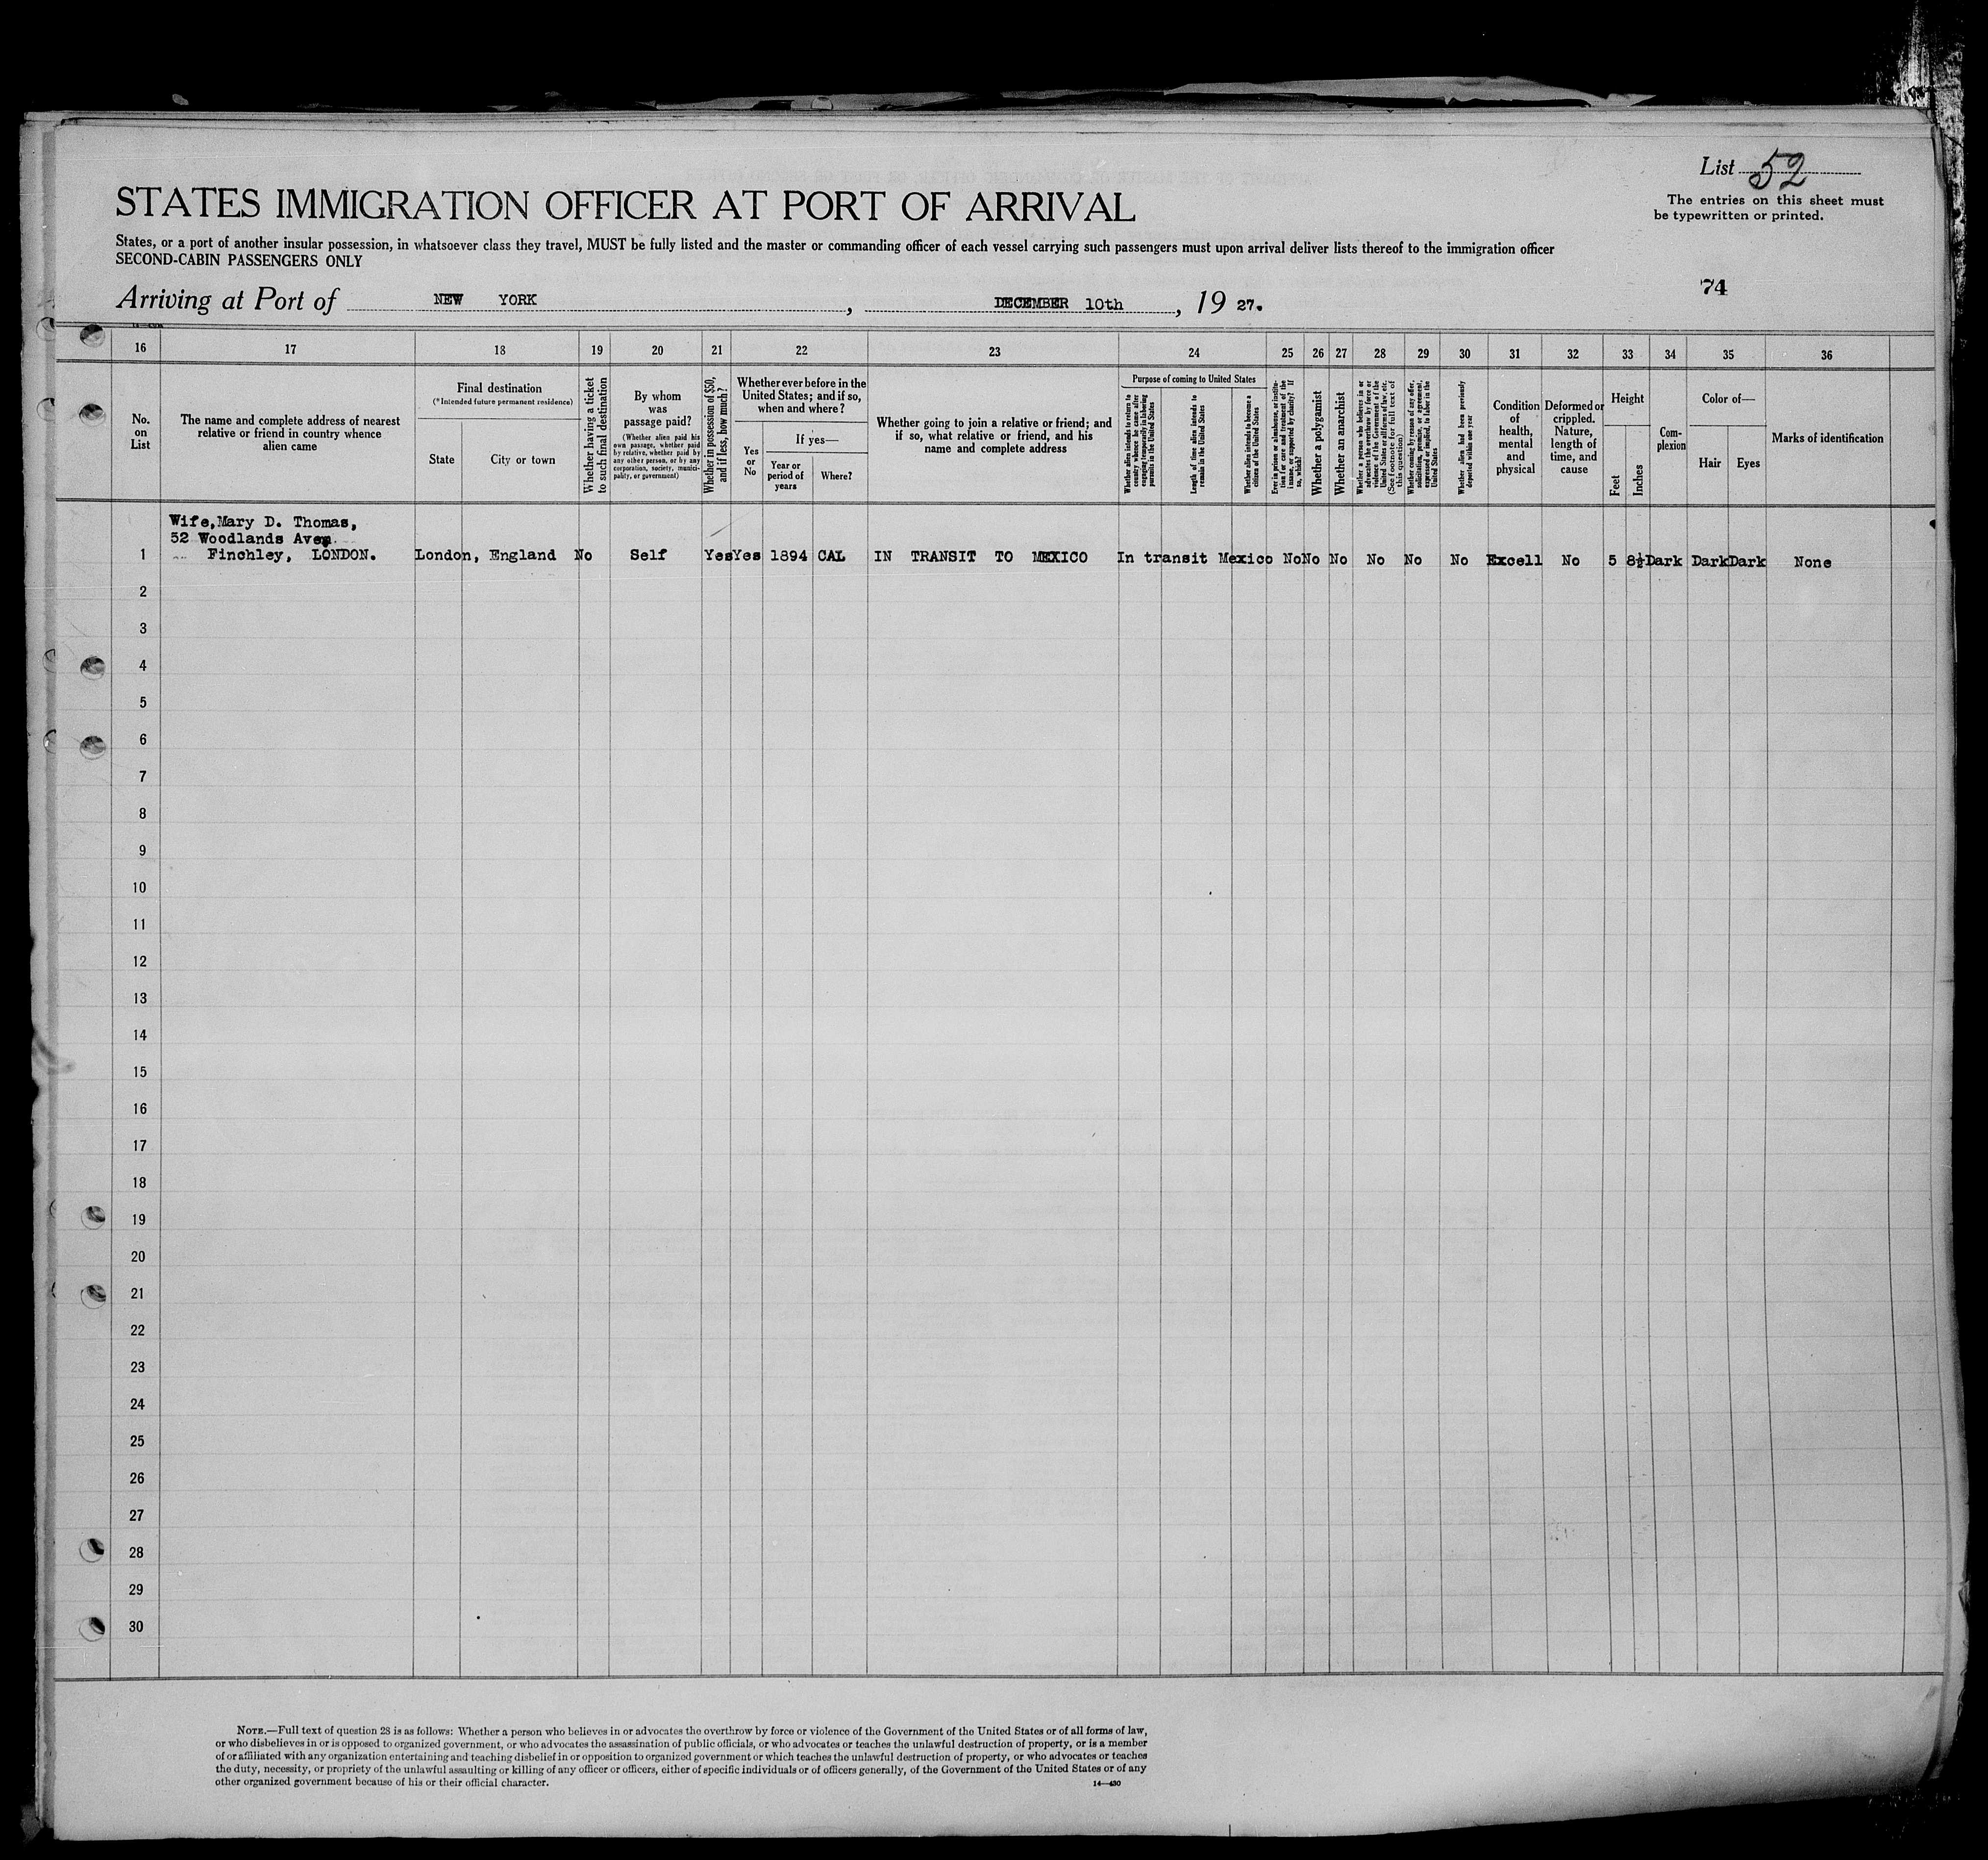 List 52
The entries on this sheet must
be typewritten or printed.
STATES IMMIGRATION OFFICER AT PORT OF ARRIVAL
States, or a port of another insular possession, in whatsoever class they travel, MUST be fully listed and the master or commanding officer of each vessel carrying such passengers must upon arrival deliver lists thereof to the immigration officer
SECOND-CABIN PASSENGERS ONLY
74
Arriving at Port of NEW YORK, DECEMBER 10th, 19 27.
16 17 18 19 20 21 22 23 24 25 26 27 28 29 30 31 32 33 34 35 36
No.
on
List
The name and complete address of nearest
relative or friend in country whence
alien came
Final destination
(*Intended future permanent residence)
State
City or town
Whether having a ticket
to such final destination
By whom
was
passage paid?
(Whether alien paid his
own passage, whether paid
by relative, whether paid by
any other person, or by any
corporation, society, munici-
pality, or government)
Whether in possession of $50,
and if less, how much?
Whether ever before in the
United States; and if so,
when and where?
Yes
or
No
If yes—
Year or
period of
years
Where?
Whether going to join a relative or friend; and
if so, what relative or friend, and his
name and complete address
Purpose of coming to United States
Whether alien intends to return to
country whence he came after
engaging temporarily in laboring
pursuits in the United States
Length of time alien intends to
remain in the United States
Whether alien intends to become a
citizen of the United States
Ever in prison or almshouse, or institu-
tion for care and treatment of the
insane, or supported by charity? If
so, which?
Whether a polygamist
Whether an anarchist
Whether a person who believes in or
advocates the overthrow by force or
violence of the Government of the
United States or all forms of law, etc.
(See footnote for full text of
this question)
Whether coming by reason of any offer,
solicitation, promise, or agreement,
expressed or implied, to labor in the
United States
Whether alien had been previously
deported within one year
Condition
of
health,
mental
and
physical
Deformed or
crippled.
Nature,
length of
time, and
cause
Height
Feet
Inches
Com-
plexion
Color of—
Hair
Eyes
Marks of identification
Wife, Mary D. Thomas,
52 Woodlands Aven.
1 Finchley, LONDON. London, England No Self Yes Yes 1894 CAL IN TRANSIT TO MEXICO In transit Mexico No No No No No No Excell No 5 8½ Dark Dark Dark None
2
3
4
5
6
7
8
9
10
11
12
13
14
15
16
17
18
19
20
21
22
23
24
25
26
27
28
29
30
NOTE.—Full text of question 28 is as follows: Whether a person who believes in or advocates the overthrow by force or violence of the Government of the United States or of all forms of law,
or who disbelieves in or is opposed to organized government, or who advocates the assassination of public officials, or who advocates or teaches the unlawful destruction of property, or is a member
of or affiliated with any organization entertaining and teaching disbelief in or opposition to organized government or which teaches the unlawful destruction of property, or who advocates or teaches
the duty, necessity, or propriety of the unlawful assaulting or killing of any officer or officers, either of specific individuals or of officers generally, of the Government of the United States or of any
other organized government because of his or their official character.
14—430